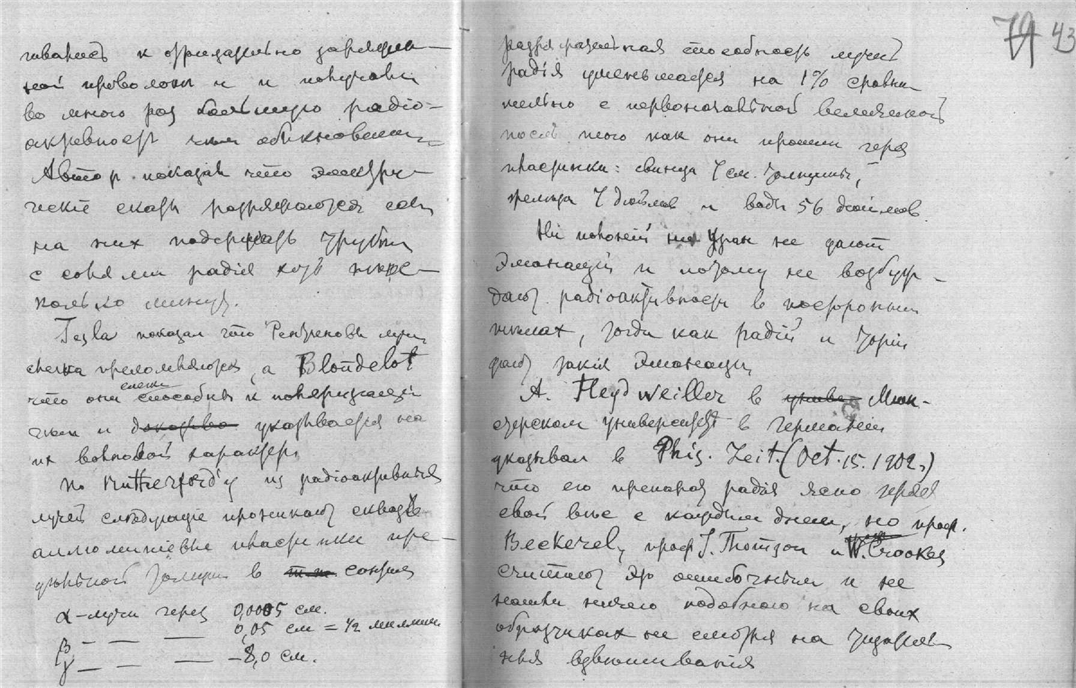 тивность к отрицательно заряжен-
ной проволоки и и получали
во много раз большую радіо-
активность чем обыкновенн
Автор показал что электри-
ческіе скаты разряжаются если
на них подержать трубки
с солями радія хоть нѣс-
колько минут.
Tesla показал что Рентгеновы лучи
слегка преломляются, а Blondelot
что они слегка способны к поляризаціи
чем и доказыва указывается на
их волновой характер.
По Rutherford'у из радіоактивных
лучей слѣдующіе проникают сквозь
аллюминіевыя пластинки пре-
дѣльной толщин в т.п. сантим
α-лучи через 0,0005 см.
β — — — 0,05 см = 1/2 миллим
γ — — — 8,0 см.
74 43
разряжательная способность лучей
радія уменьшается на 1% сравни
тельно с первоначальной величиной
после того как они прошли через
пластинки: свинца 7 см. толщины,
желѣза 7 дюймов и воды 56 дюймов.
Ни полоній ни Уран не дают
эманацій и потому не возбуж-
дают радіоактивность в посторонних
тѣлах, тогда как радій и Торій
дают такія эманаціи
A. Heydweiller в униве Мюн-
стерском университет в Германіи
указывал в Phis. Zeit. (Oct. 15. 1902.)
что его препарат радія ясно терял
свой вѣс с каждым днем, но проф.
Beckerel, проф J. Thomson и W. Crookes
считают это ошибочным и не
нашли ничего подобного на своих
образчиках не смотря на тщатель
ныя взвѣшиванія